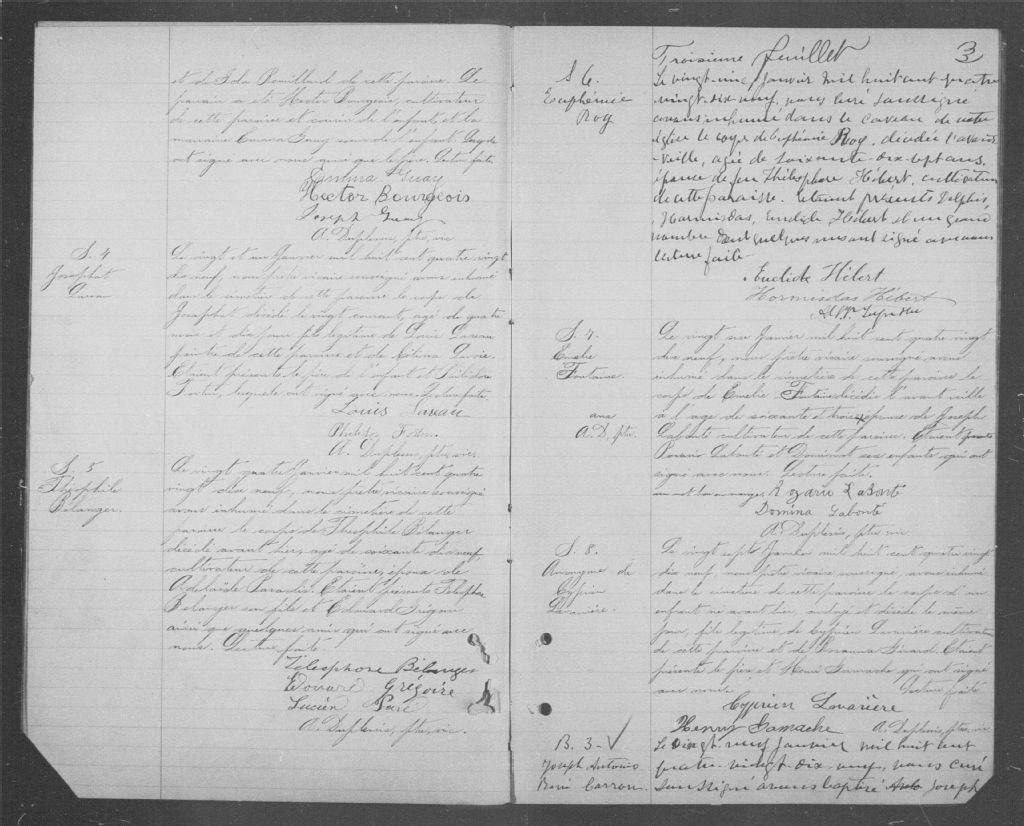 et de Ida Rouillard de cette paroisse. Le
parrain a été Hector Bourgeois, cultivateur
de cette paroisse et cousin de l'enfant, et la
marraine Emma Guay soeur de l'enfant. Lesquels
ont signé avec nous ainsi que le père. Lecture faite
Emma Guay
Hector Bourgeois
Joseph Guay
A. Duplessis, ptre, vic
S. 4
Josaphat
Laveau
Le vingt et un Janvier mil huit cent quatre vingt
dix neuf, nous prêtre vicaire soussigné avons inhumé
dans le cimetière de cette paroisse le corps de
Josaphat décédé le vingt courant, agé de quatre
mois et dix jours fils légitime de Louis Laveau
peintre de cette paroisse et de
Etaient présents le père de l'enfant et
lesquels ont signé avec nous. Lecture faite.
Louis Laveau
A. Duplessis, ptre, vic.
S. 5
Théophile
Bélanger.
Le vingt quatre Janvier mil huit cent quatre
vingt dix neuf, nous prêtre vicaire soussigné
avons inhumé dans le cimetière de cette
paroisse le corps de Théophile Bélanger
décédé avant hier, agé de soixante dix neuf,
cultivateur de cette paroisse, époux de
Adélaïde Paradis. Etaient présents Télesphore
Bélanger son fils et Edouard
ainsi que quelques amis qui ont signé avec
nous. Lecture faite.
Télesphore Bélanger
Edouard Grégoire
Lucien Paré
A. Duplessis, ptre, vic.
Troisième feuillet 3
S 6.
Euphémie
Roy
Le vingt-cinq Janvier mil huit cent quatre
vingt-dix-neuf, nous curé soussigné
avons inhumé dans le caveau de cette
église le corps de Euphémie Roy, décédée l'avant
veille, agée de soixante-dix-sept ans,
épouse de feu Thélesphore Hébert, cultivateur
de cette paroisse. Etaient présents Delphis,
Hormisdas, Euclide Hébert et un grand
nombre dont quelques uns ont signé avec nous
lecture faite
Euclide Hébert
Hormisdas Hébert
S. 7.
Emelie
Fontaine.
ans
A. D. ptre.
Le vingt six Janvier mil huit cent quatre vingt
dix neuf, nous prêtre vicaire soussigné avons
inhumé dans le cimetière de cette paroisse le
corps de Emelie Fontaine décédée l'avant veille
à l'age de soixante et trois x épouse de Joseph
Labonté cultivateur de cette paroisse. Etaient présents
Rosario Labonté et Domina ses enfants qui ont
signé avec nous. Lecture faite.
un mot bon en marge. Rozario LaBonté
Domina Labonté
A. Duplessis, ptre vic.
S. 8.
Anonyme de
Cyprien
Larivière.
Le vingt sept Janvier mil huit cent quatre vingt
dix neuf, nous prêtre vicaire soussigné, avons inhumé
dans le cimetière de cette paroisse le corps d'un
enfant né avant hier, ondoyé et décédé le même
jour, fils légitime de Cyprien Larivière cultivateur
de cette paroisse et de Rosanna Girard. Etaient
présents le père et Henri Gamache qui ont signé
avec nous. Lecture faite
Cyprien Larivière
Henry Gamache A. Duplessis, ptre, vic
B. 3 - √
Joseph Antonio
René Carron.
Le vingt-neuf Janvier mil huit cent
quatre-vingt-dix-neuf, nous curé
soussigné avons baptisé Joseph